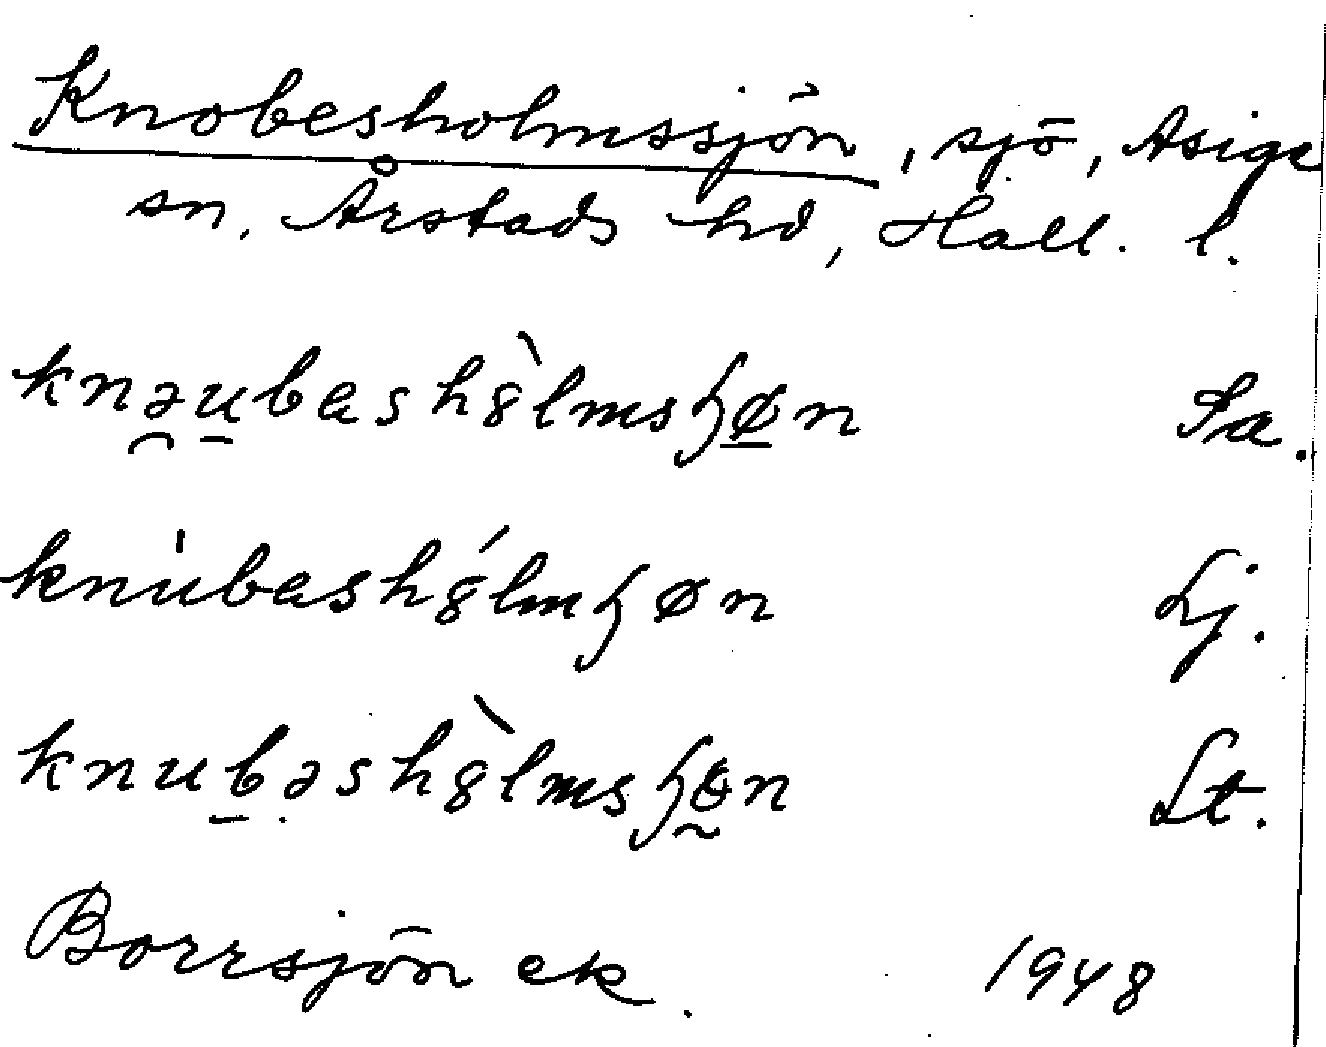 Knobesholmssjön, sjö, Asige
sn, Årstads hd, Hall. l.
knəubashòlmsɧøn Sa.
knubashólmɧøn Lj.
knubəshòlmsɧɵn Lt.
Borrsjön ek. 1948